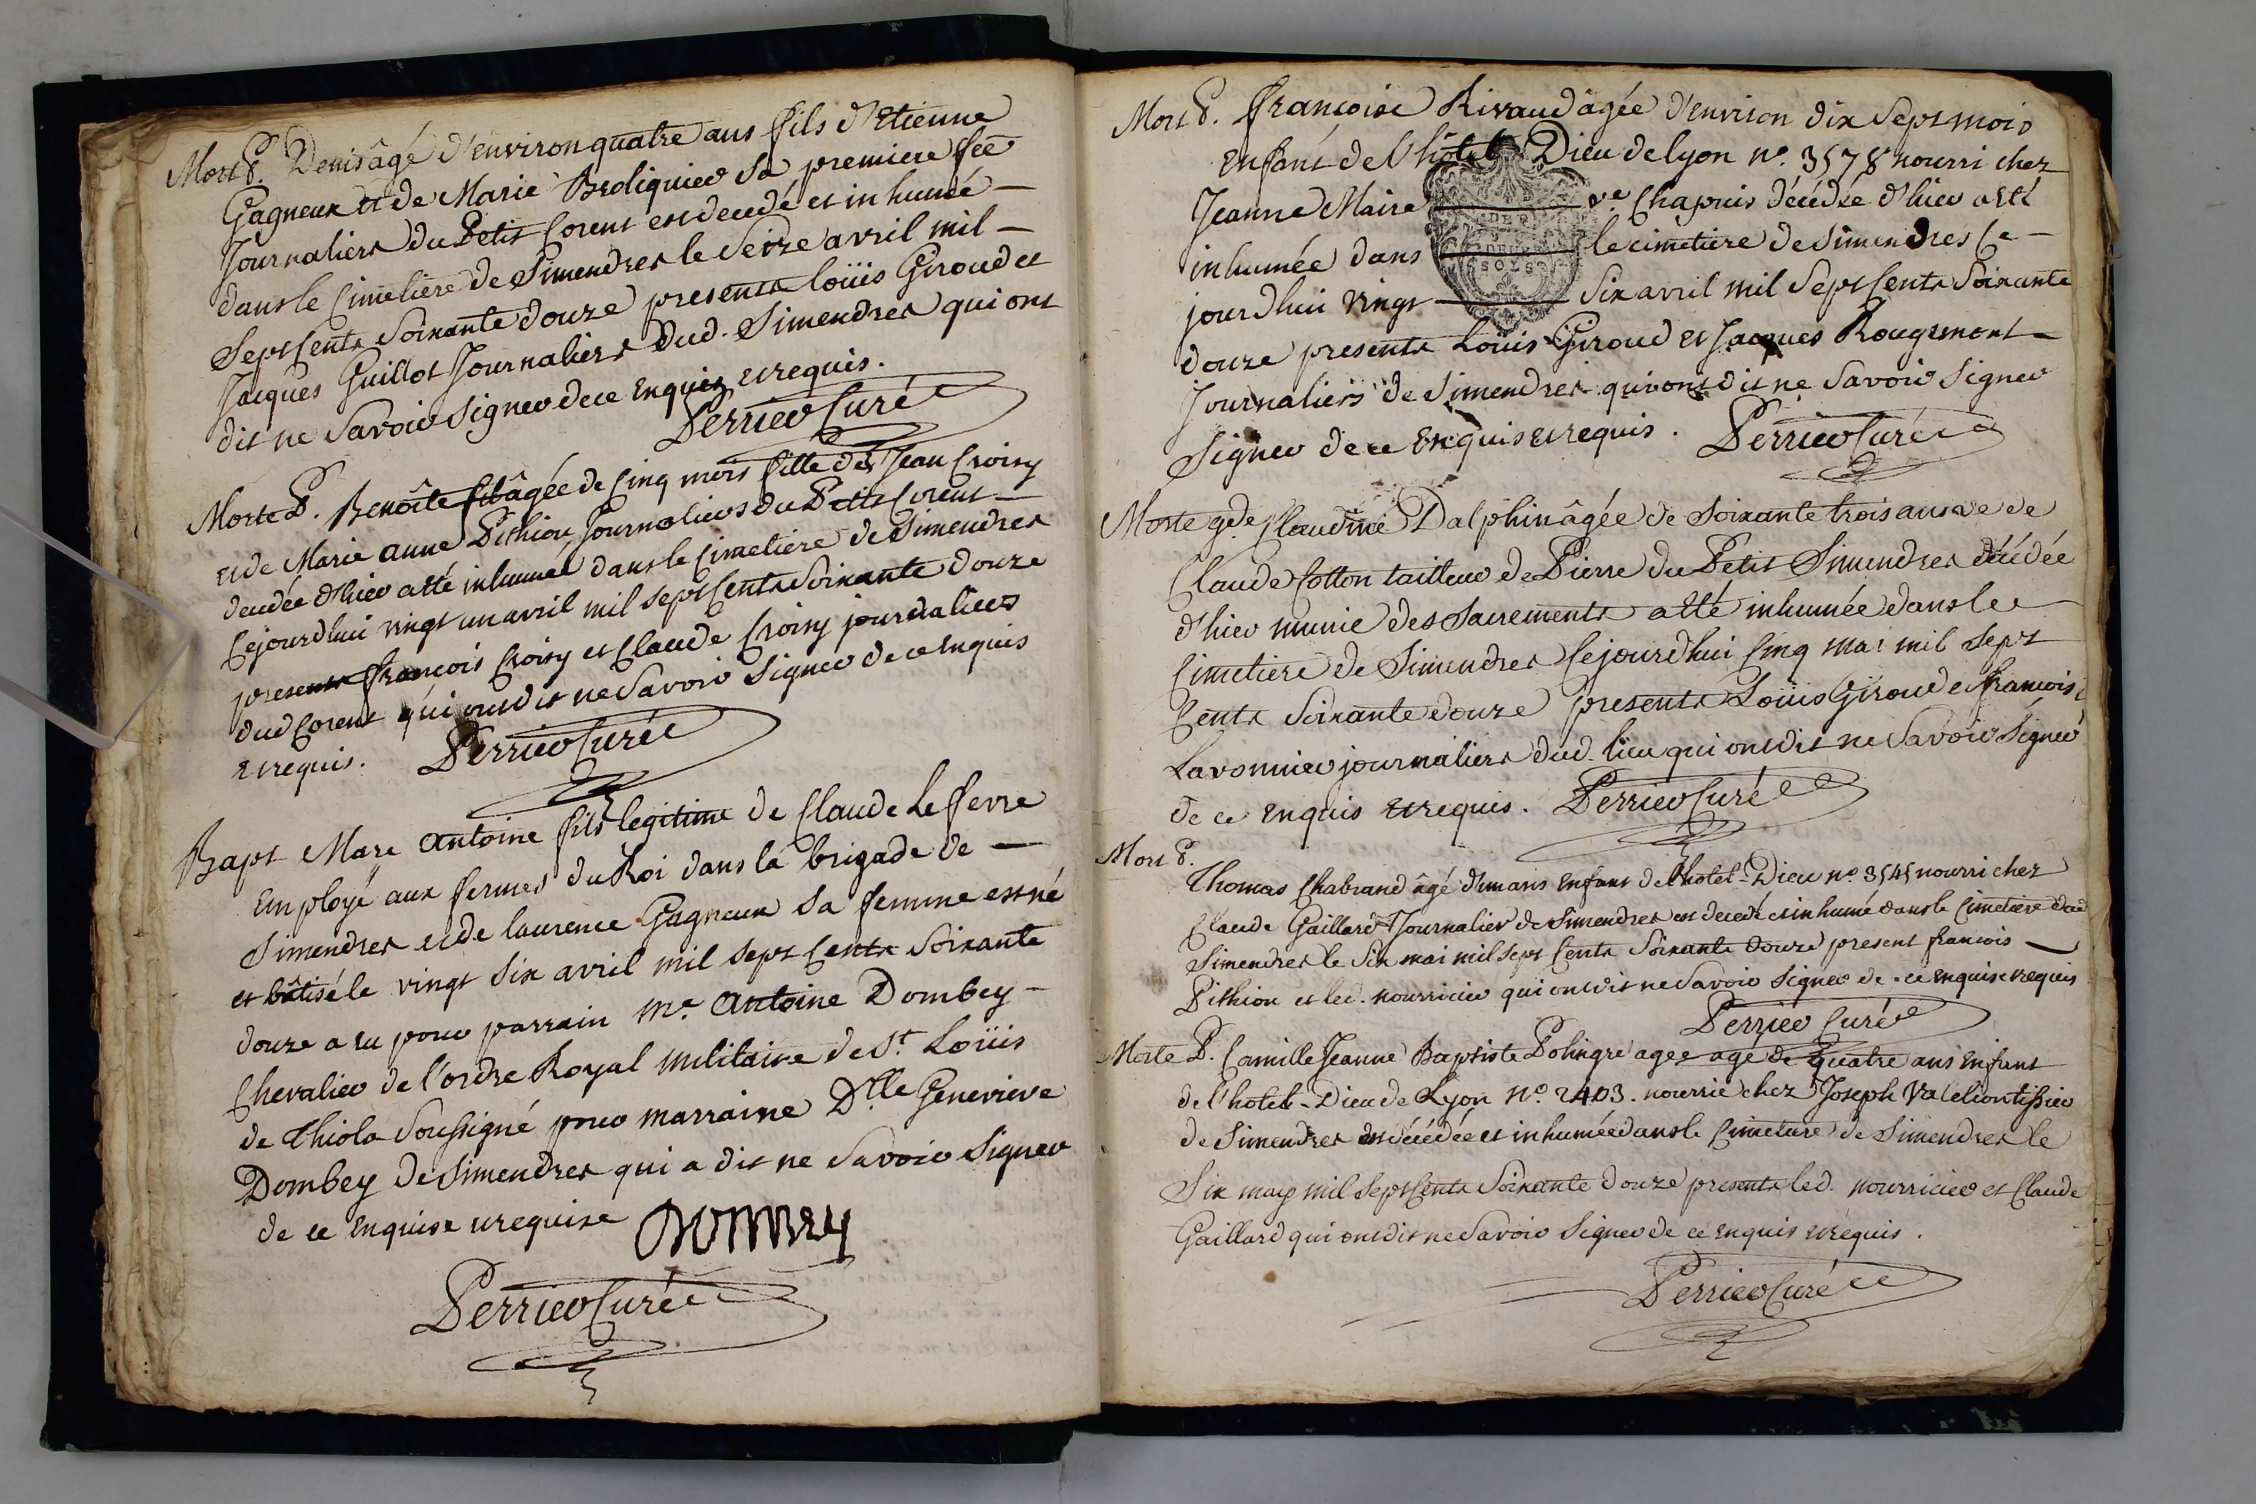 Mort P. Denis âgé d'environ quatre ans fils d'Etienne
Gagneux et de Marie Broliquier sa premiere fēe
Journaliers du Petit Corent est decedé et inhumé —
dans le Cimetière de Simendres le Seize avril mil —
Sept Cents Soixante douze presents loüis Giroud et
Jacques Guillot Journaliers dud. Simendres qui ont
dit ne Savoir Signer de ce Enquis et requis.
Perrier Curé
Morte P. Benoîte âgée de Cinq mois fille de Jean Croisy
et de Marie anne Pithiou Journaliers du Petit Corent —
decedée d'hier a été inhumée dans le Cimetiere de Simendres
Cejourdhui vingt un avril mil sept Cents Soixante douze
presents françois Croisy et Claude Croisy journaliers
dud Corent qui ont dit ne Savoir Signer de ce enquis
et requis. Perrier Curé
Bapt Marc antoine fils legitime de Claude Le fevre
Employé aux fermes du Roi dans la brigade de —
Simendres et de laurence Gagneux sa femme est né
et bâtisé le vingt six avril mil sept Cents Soixante
douze a eu pour parrain Mr. antoine Dombey —
Chevalier de l'ordre Royal militaire de St. Loüis
de Thiola Soussigné pour marraine Dlle Genevieve
Dombey de Simendres qui a dit ne Savoir Signer
de ce enquise et requise Dombey
Perrier Curé
Mort P. françoise Rivaud âgée d'environ dix Sept mois
enfant de l'hôtel Dieu de lyon no. 3578 nourri chez
Jeanne Maire ve. Chapuis décédée d'hier a été
inhumée dans le cimetiere de Simendres Ce —
jourdhui vingt Six avril mil Sept Cents Soixante
douze presents Loüis Giroud et Jacques Rougemont —
Journaliers de Simendres qui ont dit ne Savoir Signer
Signer de ce Enquis et requis. Perrier Curé
Morte gde. Claudine Dalphin âgée de Soixante trois ans ve de
Claude Cotton tailleur de Pierre du Petit Simendres décédée
d'hier munie des Sacrements a été inhumée dans le
Cimetiere de Simendres Cejourdhui Cinq mai mil Sept
Cents Soixante douze presents Loüis Giroud et françois
Lavonnier journaliers dud. lieu qui ont dit ne Savoir Signer
de ce enquis et requis. Perrier Curé
Mort P.
Thomas Chabrand âgé d'un ans enfant de l'hotel-Dieu no. 3545 nourri chez
Claude Gaillard Journalier de Simendres est decedé et inhumé dans le Cimetiere dud
Simendres le Six mai mil Sept Cents Soixante Douze present francois —
Pithion et led. nourricier qui ont dit ne Savoir Signer de ce enquis et requis
Perrier Curé
Morte P. Camille Jeanne Baptiste Polingre agee age de quatre ans enfant
de l'hotel-Dieu de Lyon No. 2403. nourrie chez Joseph tissier
de Simendres est décédée et inhumée dans le Cimetiere de Simendres le
Six may mil Sept Cents Soixante douze presents led. nourricier et Claude
Gaillard qui ont dit ne Savoir Signer de ce enquis et requis.
Perrier Curé